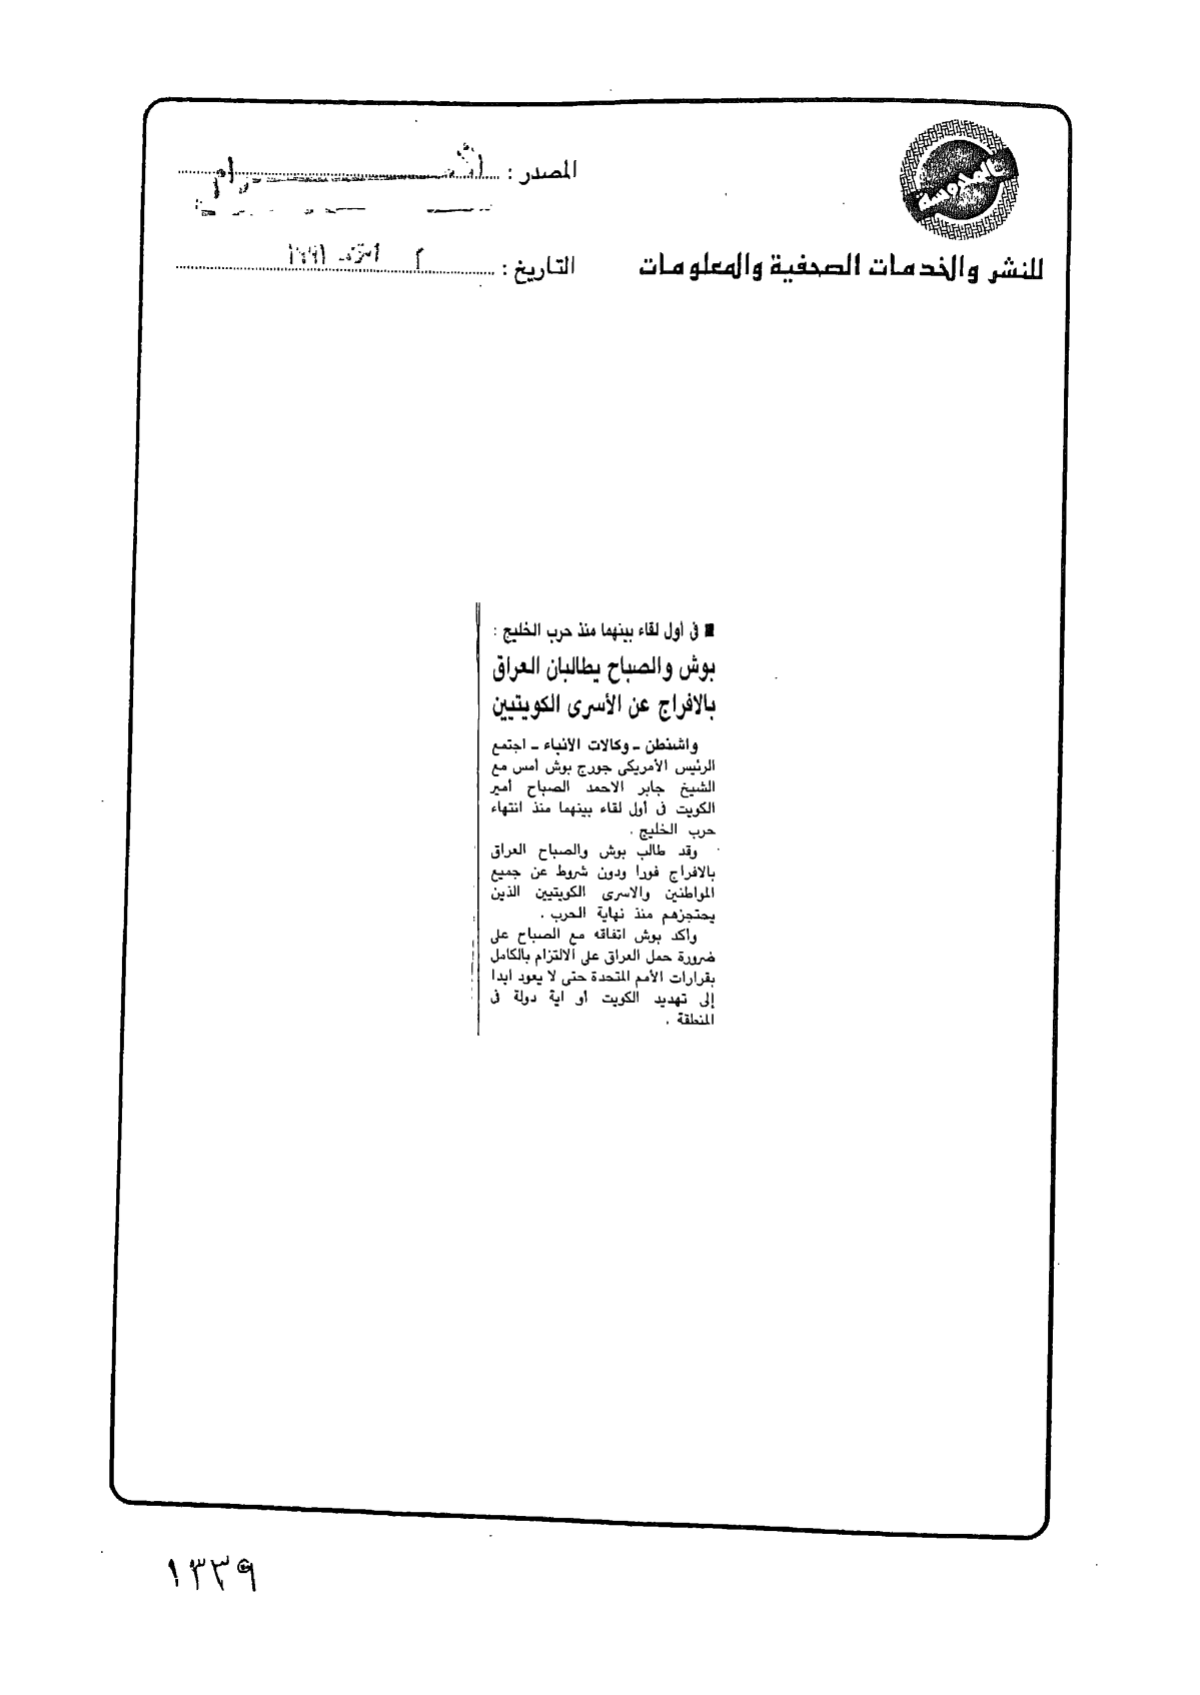 المحروسة
المصدر : الأهـــرام
للنشر والخدمات الصحفية والمعلومات
التاريخ : ٢ أكتوبر ١٩٩١
■ فى أول لقاء بينهما منذ حرب الخليج :
بوش والصباح يطالبان العراق
بالافراج عن الأسرى الكويتيين
واشنطن ـ وكالات الأنباء ـ اجتمع
الرئيس الأمريكى جورج بوش أمس مع
الشيخ جابر الاحمد الصباح أمير
الكويت فى أول لقاء بينهما منذ انتهاء
حرب الخليج .
وقد طالب بوش والصباح العراق
بالافراج فورا ودون شروط عن جميع
المواطنين والاسرى الكويتيين الذين
يحتجزهم منذ نهاية الحرب .
وأكد بوش اتفاقه مع الصباح على
ضرورة حمل العراق على الالتزام بالكامل
بقرارات الأمم المتحدة حتى لا يعود ابدا
إلى تهديد الكويت أو اية دولة فى
المنطقة .
١٣٣٩